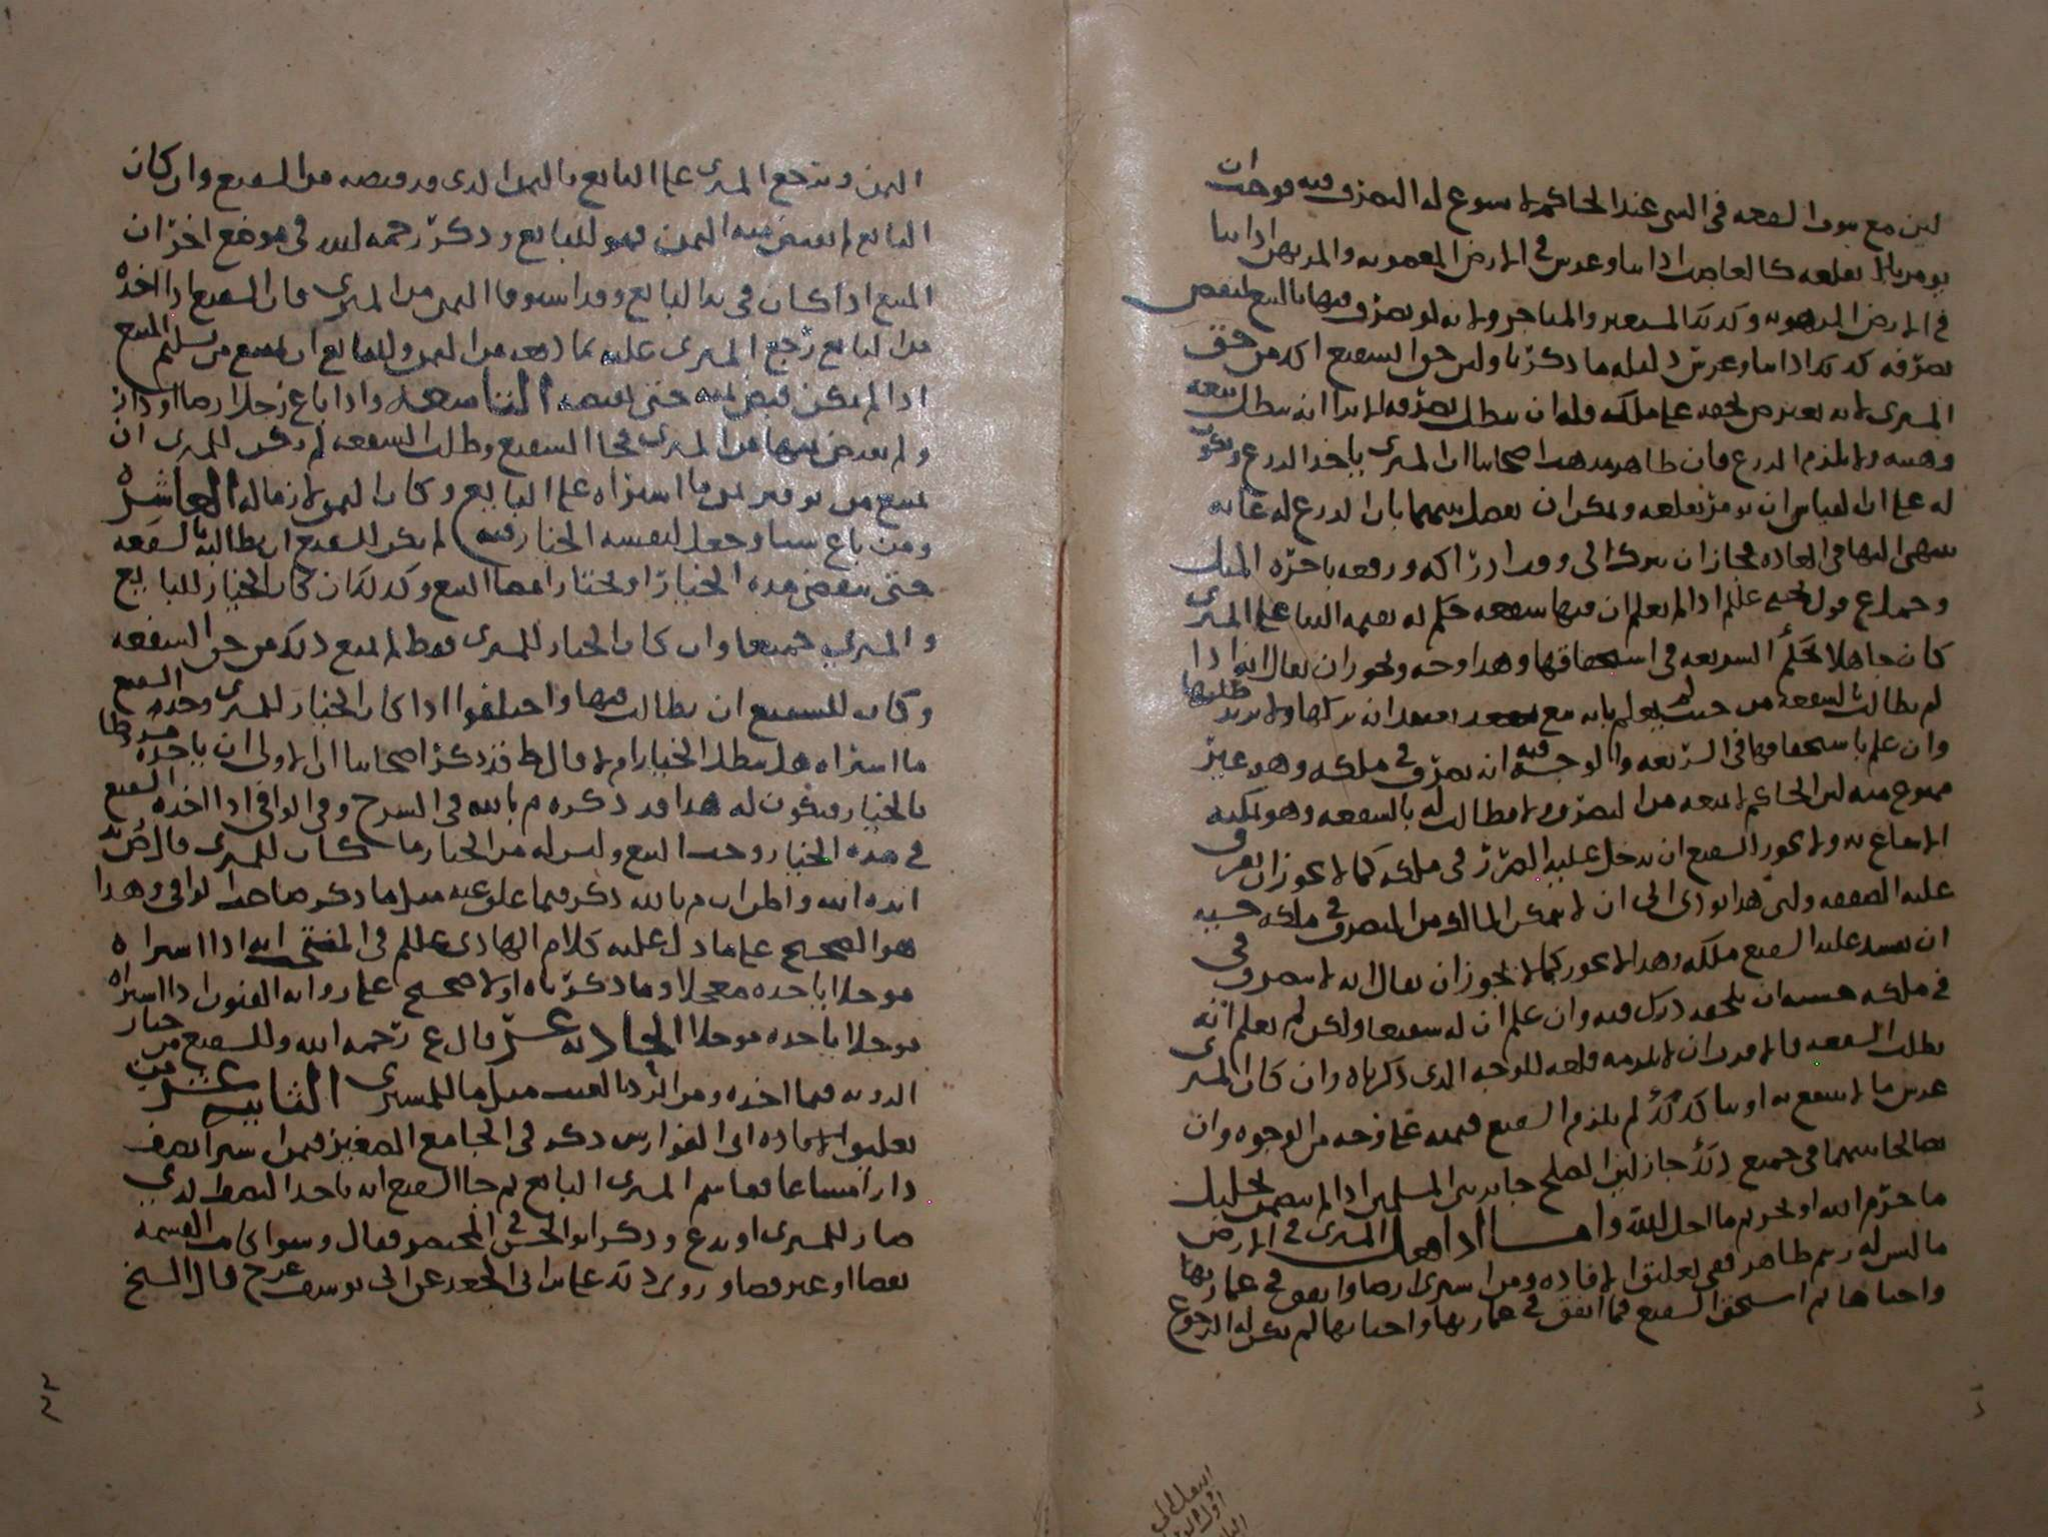 لان مع ثبوت الشفعة في الشي عند الحاكم لا يسوغ له التصرف فيه فوجب ان
يؤمر بان يقلعه كالغاصب اذا بنا وغرس في الارض المغصوبة والمرتهن اذا بنا
في الارض المرهونة وكذلك المستعير والمتاجر ولانه لو تصرف فيها بالبيع لنقض
تصرفه كذلك اذا بنا وغرس دليله ما ذكرنا ولان حق الشفيع اكد من حق
المشتري لانه يعترض لحقه على ملكه وله ان يبطل تصرفه الا ترا انه يبطل بيعه
وهبته ولا يلزم الزرع فان ظاهر مذهب اصحابنا ان المشتري ياخذ الزرع ويكون
له على ان القياس ان يؤمر بقلعه ويمكن ان يفصل بينهما بان الزرع له غاية
ينتهي اليها في العادة فجاز ان يترك الى وقت ادراكه ورفعه باجرة المثل
وحمل ع قول يحيى عللم اذا لم يعلم ان فيها شفعة حكم له بقيمة البنا على المشتري
كان جاهلا بحكم الشريعة في استحقاقها وهذا وجه ويجوز ان يقال انه اذا
لم يطالب بالشفعة من حيث لم يعلم بانه مع يعتقد انه تركها ولا يريد طلبها
وان علم باستحقاقها في الشريعة والوجه فيه انه تصرف في ملكه وهو غير
ممنوع منه لان الحاكم لا يمنعه من التصرف ولا مطالب له بالشفعة وهو يمكنه
الانتفاع به ولا يجوز للشفيع ان يدخل عليه الضرر في ملكه كما لا يجوز ان يفرق
عليه الصفقة ولان هذا يودي الى ان لا يتمكن المالك من التصرف في ملكه خشية
ان يفسد عليه الشفيع ملكه وهذا لا يجوز كما لا يجوز ان يقال انه لا يتصرف في
في ملكه خشية ان يلحقه درك فيه وان علم ان له شفيعا ولكن لم يعلم انه
يطلب الشفعة فالاقرب ان لا يلزمه قلعه للوجه الذي ذكرناه وان كان المشتري
غرس ما لا ينتفع به او بنا كذلك لم يلزم الشفيع قيمته على وجه من الوجوه وان
تصالحا بينهما في جميع ذلك جاز لان الصلح جايز بين المسلمين اذا لم يتضمن تحليل
ما حرم الله او تحريم ما احل الله واما اذا فعل المشتري في الارض
ما ليس له رسم ظاهر ففي تعليق الافادة ومن اشترى ارضا وانفق في عمارتها
واحياها ثم استحق الشفيع فما انفق في عمارتها واحيائها لم يكن له الرجوع
الثمن ويرجع المشتري على البايع بالثمن الذي قد قبضه من الشفيع وان كان
البايع لم يقبض منه الثمن فهو للبايع وذكر رحمه الله في موضع اخر ان
المبيع اذا كان في يد البايع وقد استوفا الثمن من المشتري فان الشفيع اذا اخذه
من البايع رجع المشتري عليه بما دفعه من الثمن وللبايع ان يمتنع من تسليم المبيع
اذا لم يكن قبض ثمنه حتى يقبضه التاسعة واذا باع رجل ارضا او دارا
ولم يقبض ثمنها من المشتري فجا الشفيع وطلب الشفعة لم يكن للمشتري ان
يمتنع من توفير ثمن ما اشتراه على البايع وكان الثمن لازما له العاشرة
ومن باع شيا وجعل لنفسه الخيار فيه لم يكن للشفيع ان يطالبه بالشفعة
حتى ينقضي مدة الخيار او يختار امضا البيع وكذلك ان كان الخيار للبايع
والمشتري جميعا وان كان الخيار للمشتري فقط لم يمنع ذلك من حق الشفعة
وكان للشفيع ان يطالب فيها واختلفوا اذا كان الخيار للمشتري وحده الشفيع
ما اشتراه هل يبطل الخيار ام لا قال ط قد ذكر اصحابنا ان الاولى ان ياخذه
بالخيار فيكون له هذا قد ذكره م بالله في الشرح وفي الوافي اذا اخذه الشفيع
في مدة الخيار وجب البيع وليس له من الخيار ما كان للمشتري قال
ايده الله واظن ان م بالله ذكر فيما علق عنه مثل ما ذكر صاحب الوافي وهذا
هو الصحيح على ما دل عليه كلام الهادي عللم في المنتخب انه اذا اشتراه
مؤجلا ياخذه معجلا وما ذكرناه اولا صحيح على رواية الفنون اذا اشتراه
مؤجلا ياخذه مؤجلا الحادية عشر قال ع رحمه الله وللشفيع من خيار
الروية فيما اخذه ومن الرد بالعيب مثل ما للمشتري الثانية عشر من
تعليق الافادة ابي الفوارس ذكر في الجامع الصغير فيمن اشترا نصف
دار مشاعا فقاسم المشتري البايع ثم جا الشفيع انه ياخذ النصف الذي
صار للمشتري او يدع وذكر ابو الحسن في المختصر فقال وسوا كانت القسمة
بقضا او غير قضا وروى ذلك عن ابي يوسف عن ح قال الشيخ